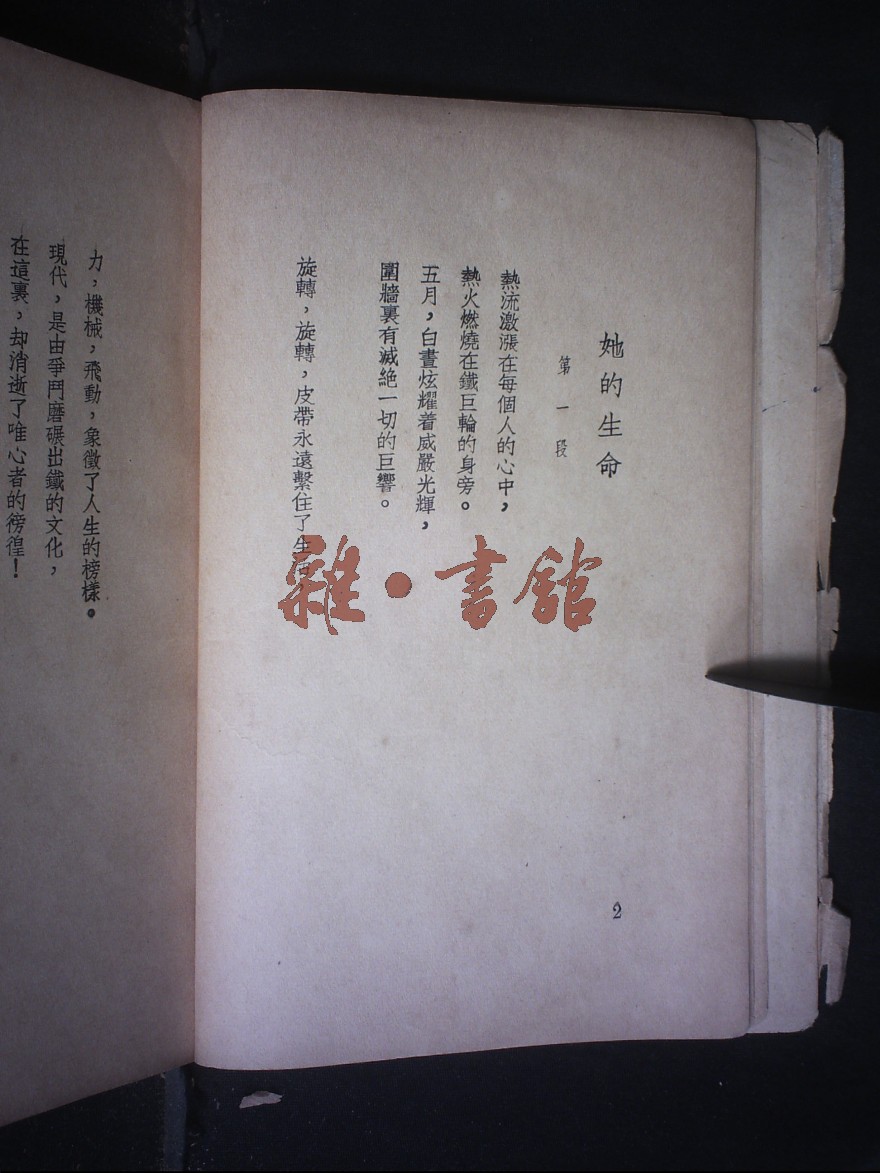 她的生命
第一段
熱流激漲在每個人的心中，
熱火燃燒在鐵巨輪的身旁。
五月，白晝炫耀着威嚴光輝，
圍牆裏有滅絕一切的巨響。
旋轉，旋轉，皮帶永遠繫住了生
2
力，機械，飛動，象徵了人生的榜樣。
現代，是由爭鬥磨碾出鐵的文化，
在這裏，却消逝了唯心者的徬徨！
雜·書館